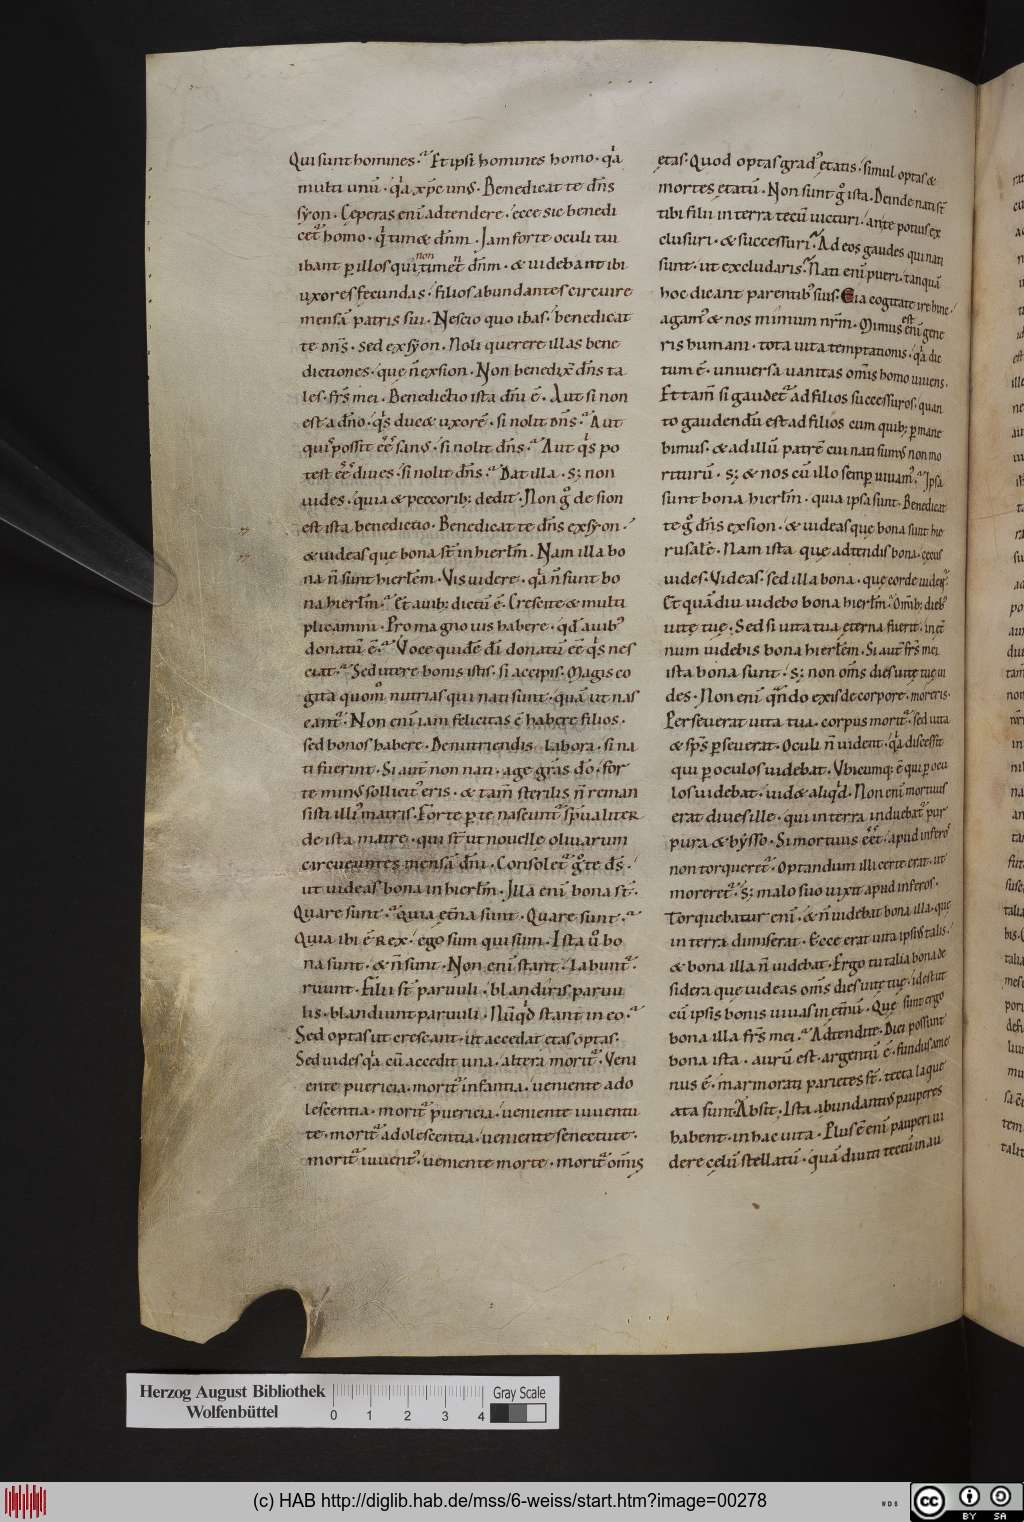 Qui sunt homines · Et ipsi homines homo · q̄a
multi unū · q̄a xp̄c unꝰ · Benedicat te dn̄s
syon · Ceperas eni adtendere · ecce sic benedi
cet homo · q̄ timet dnm · Jam forte oculi tui
ibant p illos qui non timent dnm · & uidebant ibi
uxores fecundas · filios abundantes circuire
mensā patris sui · Nescio quo ibas · benedicat
te dn̄s · sed ex syon · Noli querere illas bene
dictiones · que n̄ ex sion · Non benedix̄ dn̄s ta
les · fr̄s mei · Benedictio ista dn̄i ē · Aut si non
est a dn̄o · q̄s ducet uxorē · si nolit dn̄s · Aut
quis possit eē sanꝰ · si nolit dn̄s · Aut q̄s po
test eē diues · si nolit dn̄s · Dat illa · s; non
uides · quia & pecorib; dedit · Non g̊ de sion
est ista benedictio · Benedicat te dn̄s ex syon ·
& uideas que bona st̄ in hierlm̄ · Nam illa bo
na n̄ sunt hierlem̄ · Vis uidere · q̄a n̄ sunt bo
na hierlm̄ · Et auib; dictū ē · Crescite & multi
plicamini · Pro magno uis habere · qd̄ auibꝰ
donatū ē · Voce quidē di donatū eē q̄s nes
ciat · Sed utere bonis istis · si accipis · Magis co
gita quom̊ nutrias qui nati sunt · quā ut nas
cant᷑ · Non eni iam felicitas ē habere filios ·
sed bonos habere · De nutriendis labora · si na
ti fuerint · Si aut̄ non nati · age grās dō · for
te minꝰ sollicitꝰ eris · & tam̄ sterilis n̄ reman
sisti illi matris · Forte p te nascunt᷑ sp̄ualiter
de ista matre · qui st̄ ut nouelle oliuarum
circueuntes mensā dn̄i · Consolet᷑ g̊ te ds̄ ·
ut uideas bona in hierlm̄ · Jlla eni bona st̄ ·
Quare sunt · quia et̄na sunt · Quare sunt ·
Quia ibi ē rex · ego sum qui sum · Ista ů bo
na sunt · & n̄ sunt · Non eni stant · Labunt᷑ ·
ruunt · Filii st̄ paruuli · blandiris paruu
lis · blandiunt paruuli · Nūqd stant in eo ·
Sed optas ut crescant · ut accedat etas optas ·
Sed uides q̄a cū accedit una · altera morit᷑ · Veni
ente puericia · morit᷑ infantia · ueniente ado
lescentia · morit᷑ puericia · ueniente iuuentu
te · morit᷑ adolescentia · ueniente senectute ·
morit᷑ iuuentꝰ · ueniente morte · morit᷑ om̄is
etas · Quod optas gradꝰ etatis · simul optas &
mortes etatū · Non sunt g̊ ista · Deinde nati st̄
tibi filii in terra tecū uicturi · ante potius ex
clusuri · & successuri · Ad eos gaudes qui nati
sunt · ut excludaris · Nati eni pueri · tanquā
hoc dicant parentibꝰ suis · Eia cogitate ire hinc ·
agamꝰ & nos mimum nr̄m · Mimus est eni gene
ris humani · tota uita temptationis · q̄a dic
tum ē · uniuersa uanitas om̄is homo uiuens ·
Et tam̄ si gaudet᷑ ad filios successuros · quan
to gaudendū est ad filios cum quib; pmane
bimus · & ad illū patrē cui nati sumꝰ non mo
riturū · s; & nos cū illo semp uiuamꝰ · Ipsa
sunt bona hierlm̄ · quia ipsa sunt · Benedicat
te g̊ dn̄s ex sion · & uideas que bona sunt hie
rusalē · Nam ista que adtendis bona · cecus
uides · Videas · sed illa bona · que corde uident᷑ ·
Et quā diu uidebo bona hierlm̄ · Om̄ib; diebꝰ
uite tue · Sed si uita tua eterna fuerit · in et̄
num uidebis bona hierlem̄ · Si aut̄ fr̄s mei
ista bona sunt · s; non om̄s dies uite tue ui
des · Non eni q̄ndo exis de corpore · moreris ·
Perseuerat uita tua · corpus morit᷑ · sed uita
& sp̄s pseuerat · Oculi n̄ uident · q̄a discessit
qui p oculos uidebat · Vbicumq; ē qui p ocu
los uidebat · uidet aliqd · Non eni mortuus
erat diues ille · qui in terra induebat᷑ pur
pura & bysso · Si mortuus eēt · apud inferos
non torqueret᷑ · Optandum illi certe erat · ut
moreret᷑ · s; malo suo uixit apud inferos ·
Torquebatur eni · & n̄ uidebat bona illa · que
in terra dimiserat · Ecce erat uita ipsiꝰ talis ·
& bona illa n̄ uidebat · Ergo tu talia bona de
sidera que uideas om̄s dies uite tue · id est ut
cū ipsis bonis uiuas in et̄nū · Que sunt ergo
bona illa fr̄s mei · Adtendite · Dici possunt
bona ista · aurū est · argentū ē · fundus ame
nus ē · marmorati parietes st̄ · tecta laque
ata sunt · Absit · Ista abundantiꝰ pauperes
habent · in hac uita · Plus ē eni pauperi ui
dere celū stellatū · quā diuiti tectū in au
Herzog August Bibliothek
Wolfenbüttel
0 1 2 3 4
Gray Scale
(c) HAB http://diglib.hab.de/mss/6-weiss/start.htm?image=00278
cc BY SA